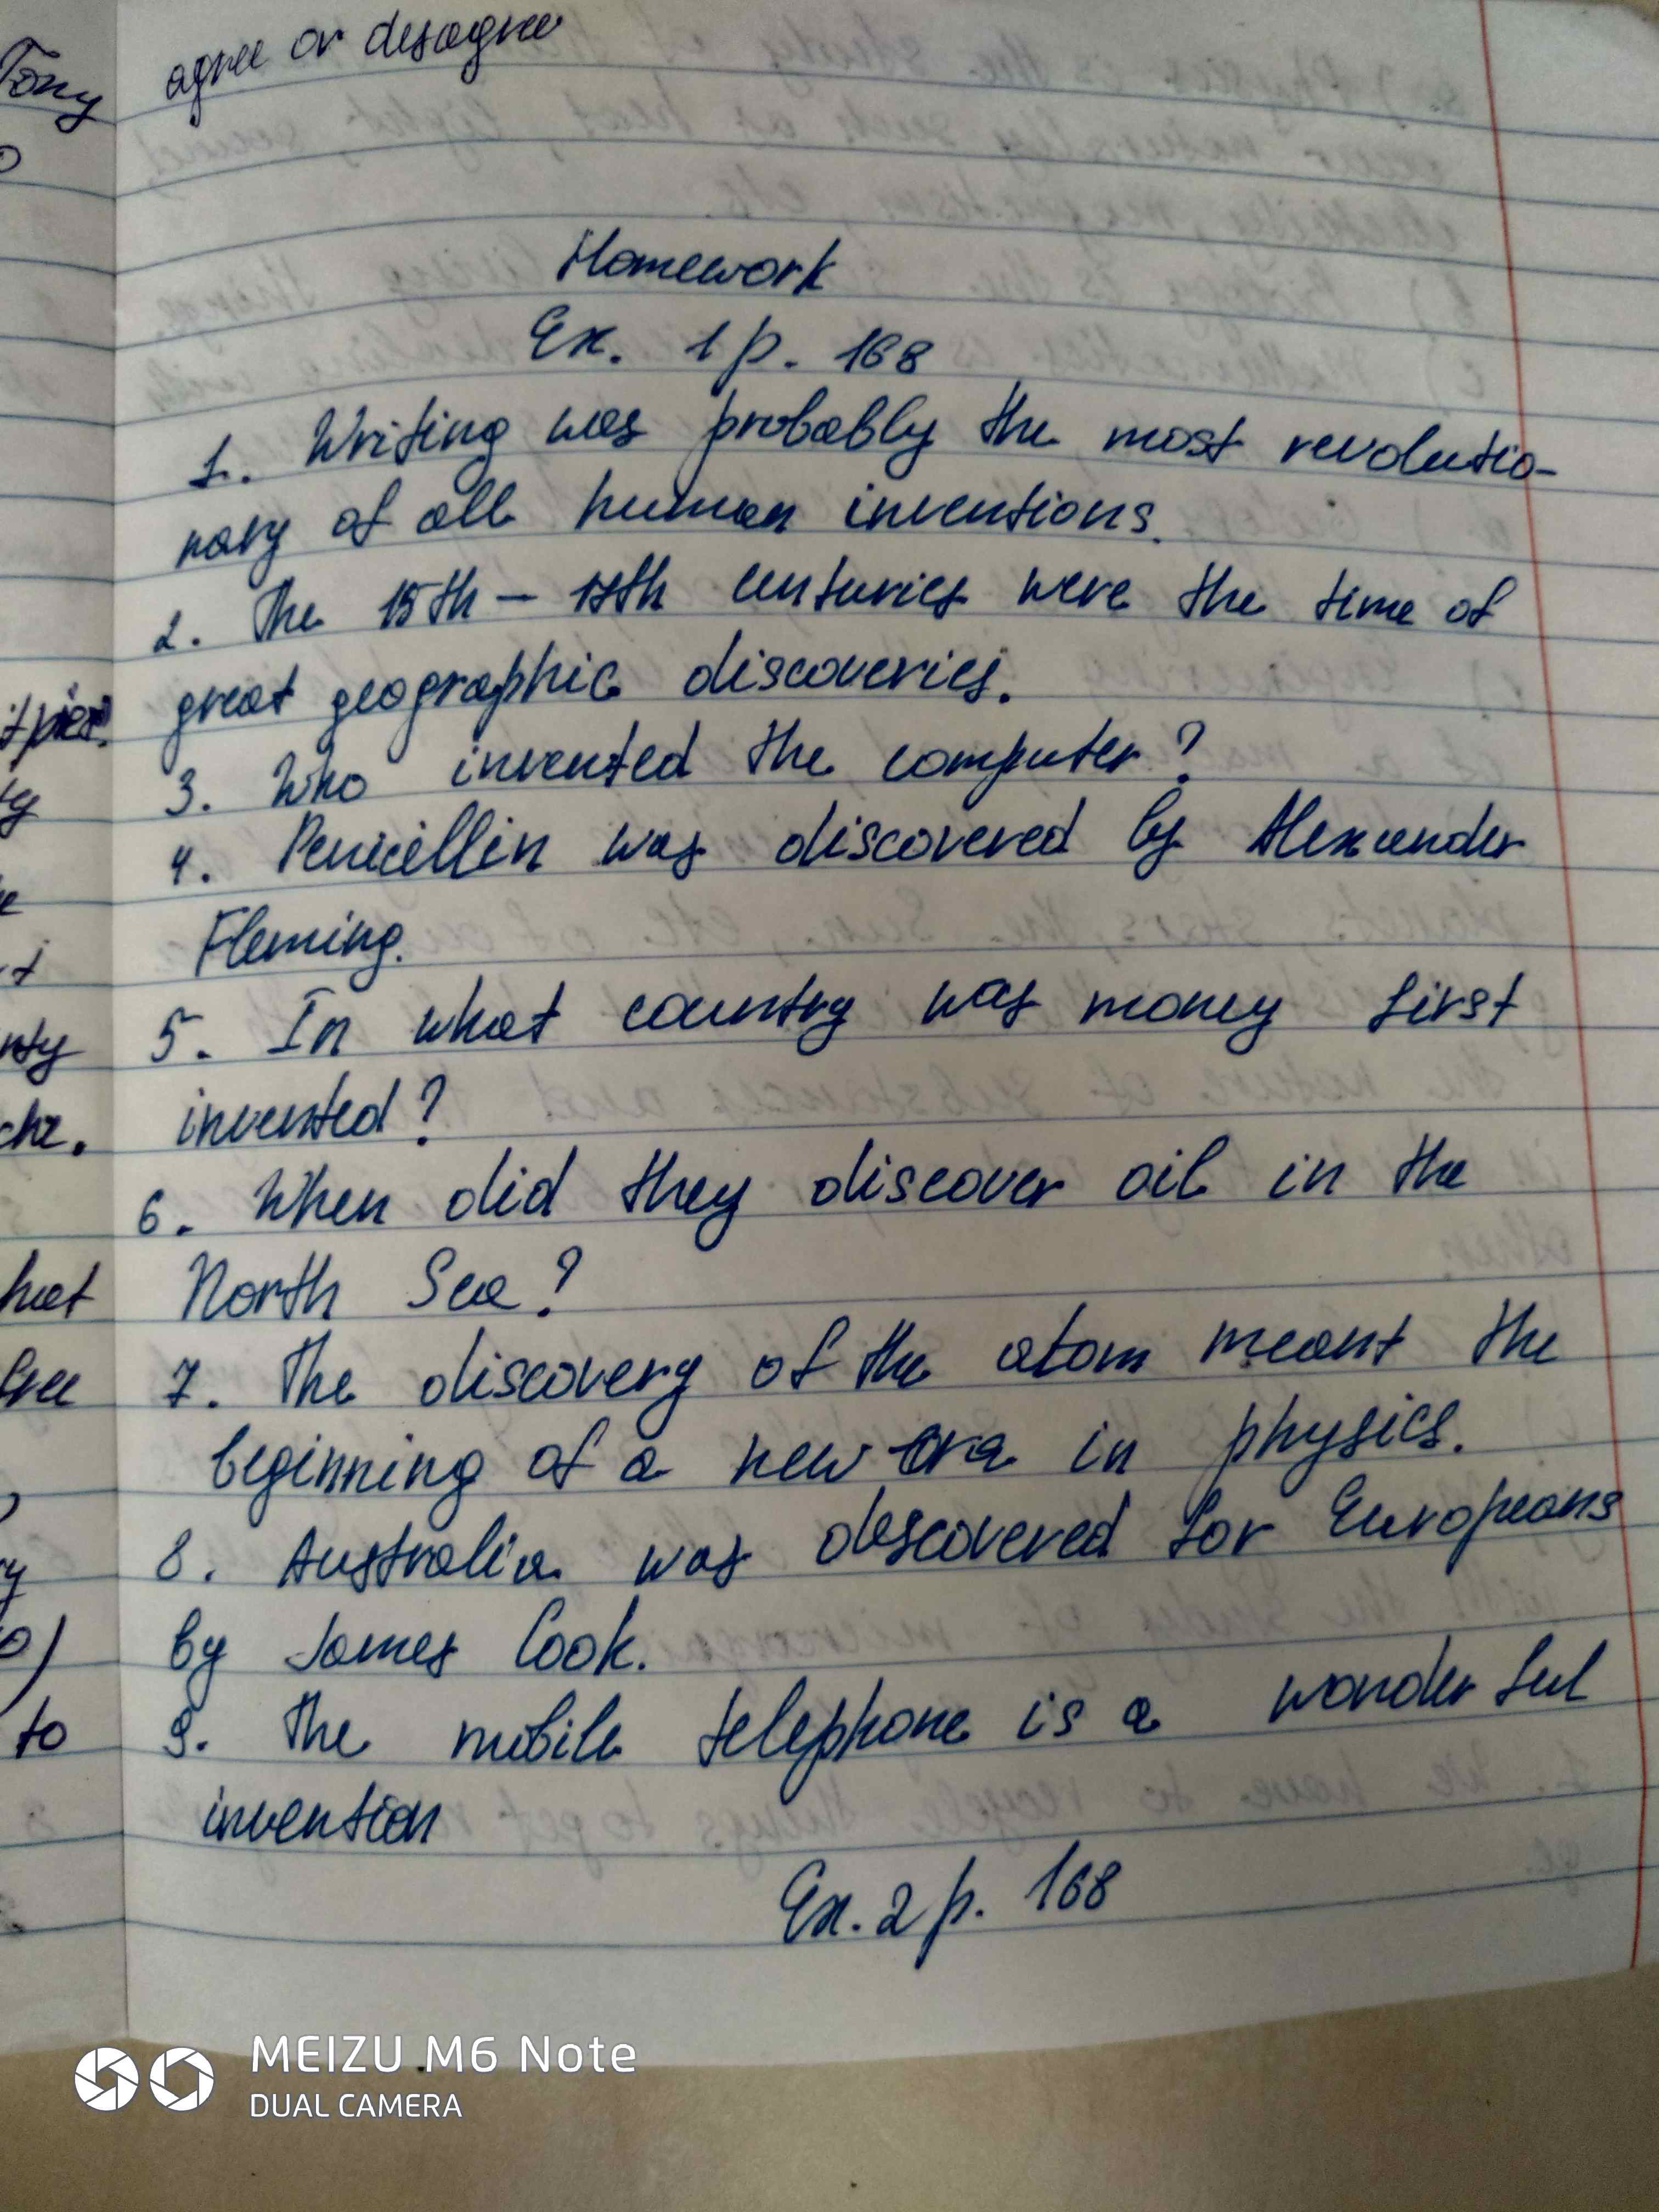 Tony
agree or desagree
Homework
Ex. 1 p. 168
1. Writing was probably the most revolutio-
nary of all human inventions.
2. The 15th - 17th centuries were the time of
great geographic discoveries.
3. Who invented the computer?
4. Penicillin was discovered by Alexander
Fleming.
5. In what country was money first
invented?
6. When did they discover oil in the
North Sea?
7. The discovery of the atom meant the
beginning of a new era in physics.
8. Australia was descovered for Europeans
by James Cook.
9. The mobile telephone is a wonderful
invention
to
Ex. 2 p. 168
MEIZU M6 Note
DUAL CAMERA